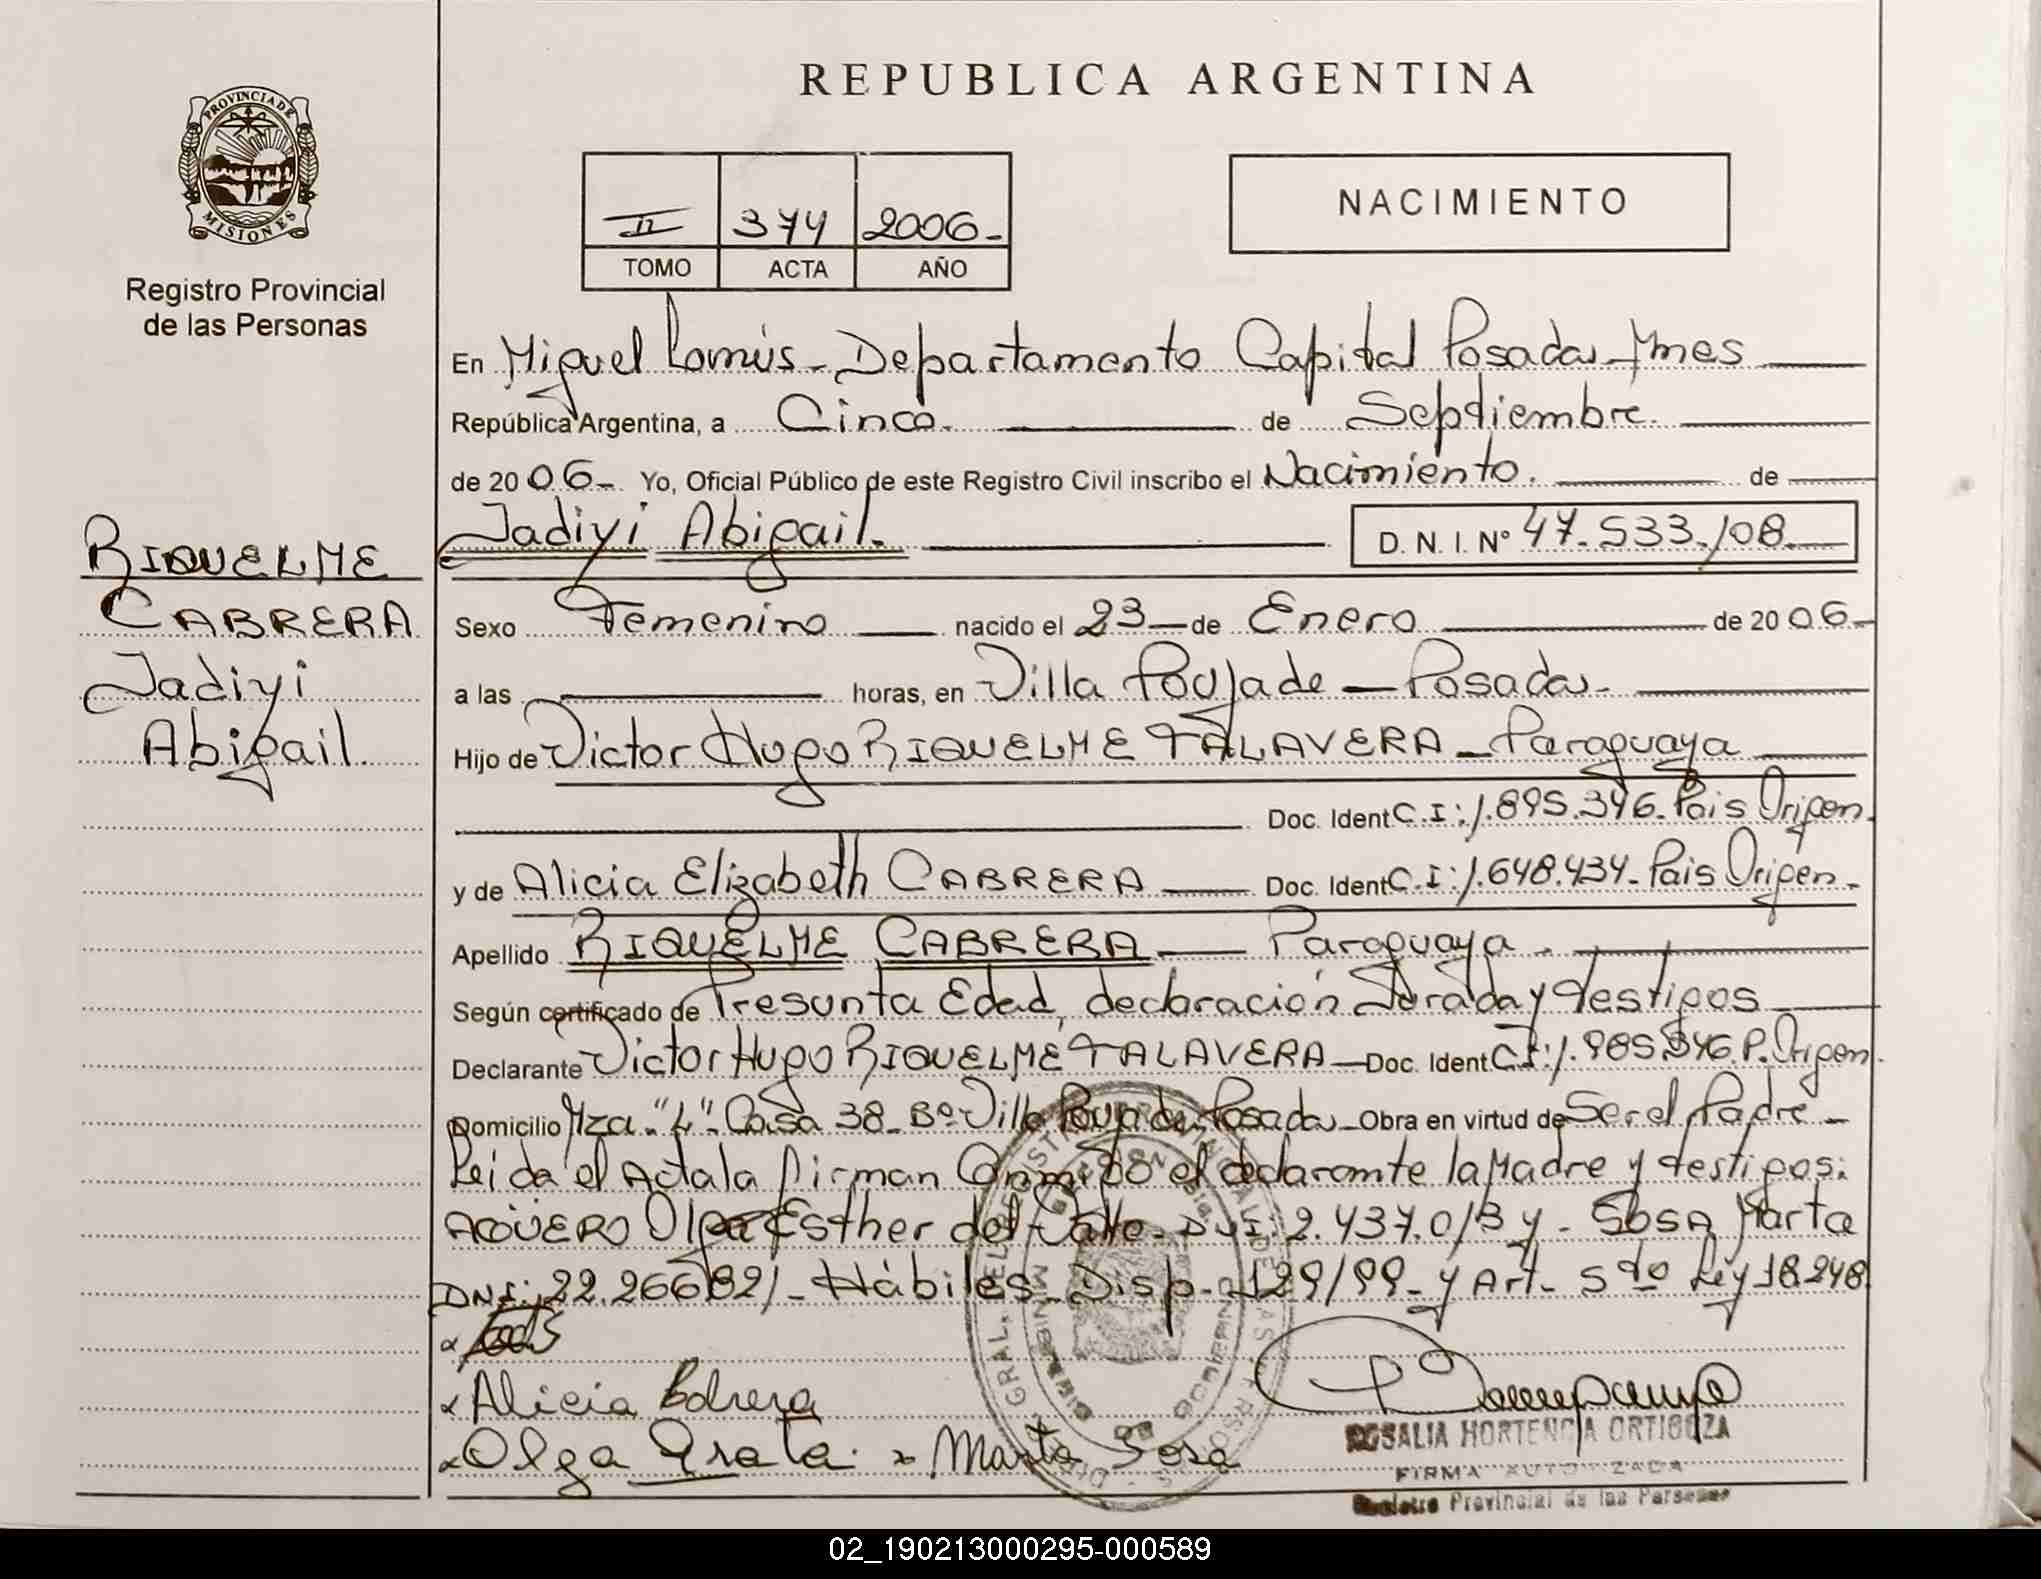 REPUBLICA ARGENTINA
PROVINCIA DE
MISIONES
Registro Provincial
de las Personas
NACIMIENTO
II 374 2006-
TOMO ACTA AÑO
En Miguel Lanús - Departamento Capital Posadas Mnes
República Argentina, a Cinco de Septiembre.
de 2006- Yo, Oficial Público de este Registro Civil inscribo el Nacimiento. de
Jadiyi Abigail. D. N. I. Nº 47.533.108
RIQUELME
CABRERA
Jadiyi
Abigail.
Sexo Femenino nacido el 23 de Enero de 2006-
a las horas, en Villa Poujade - Posadas-
Hijo de Victor Hugo RIQUELME TALAVERA - Paraguaya
Doc. Ident C.I: 1.895.346. Pais Origen.
y de Alicia Elizabeth CABRERA Doc. Ident C.I: 1.648.434- Pais Origen-
Apellido RIQUELME CABRERA - Paraguaya.
Según certificado de Presunta Edad, declaración Jurada y testigos
Declarante Victor Hugo RIQUELME TALAVERA - Doc. Ident C.I: 1.985.346. P. Origen.
Domicilio Mza. "L". Casa 38- Bº Villa Poujade. Posadas- Obra en virtud de Ser el Padre-
Leida el Acta la firman Conmigo el declarante la Madre y testigos:
AGÜERO Olga Esther del Valle- DNI: 2.437.013 y- SOSA Marta
DNI: 22.266.821- Hábiles- Disp- 129/99- y Art- 5to Ley 18.248
Alicia Cabrera
Olga Marta Sosa
ROSALIA HORTENCIA ORTIGOZA
FIRMA AUTORIZADA
Registro Provincial de las Personas
02_190213000295-000589